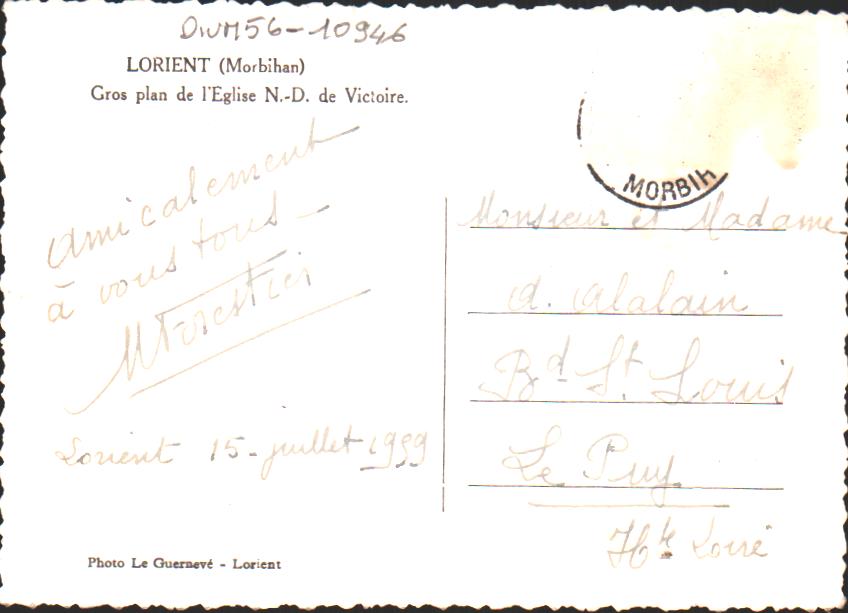 DivM56-10946
LORIENT (Morbihan)
Gros plan de l'Eglise N.-D. de Victoire.
MORBIH
amicalement
à vous tous
MForestier
Lorient 15 - juillet 1959
Photo Le Guernevé - Lorient
Monsieur et Madame
A. Alalain
Bd St Louis
Le Puy
Hte Loire